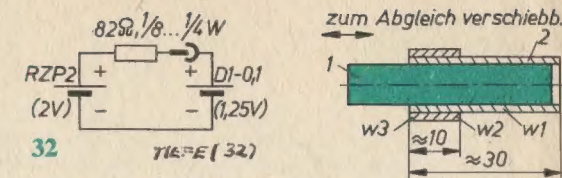 82Ω,1/8...1/4W
RZP2
(2V)
+
−
+
−
D1-0,1
(1,25V)
32
zum Abgleich verschiebb.
1
2
w3
w2
w1
≈10
≈30